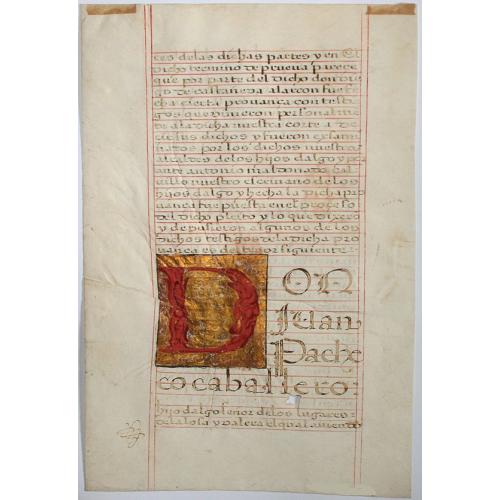 ces delas dichas partes y en el
dicho termino de prueva parece
que por parte del dicho don die
go de castañeda alarcon fue fe
cha cierta provança con testi
gos que vinieron personalme
te ala dicha nuestra corte a de
cir sus dichos y fueron exami
nados por los dichos nuestros
alcaldes de los hijos dalgo y por
ante antonio maldonado cal
nuestro escrivano de los
hijos dalgo y hecha la dicha pro
vança fue puesta en el proceso
del dicho pleito y lo que dixero
y depusieron algunos de los
dichos testigos de la dicha pro
vança es del tenor siguiente:
DON
Juan
Pache
co caballero:
hijo dalgo señor de los lugares:
de la losa y valera el qual aviendo